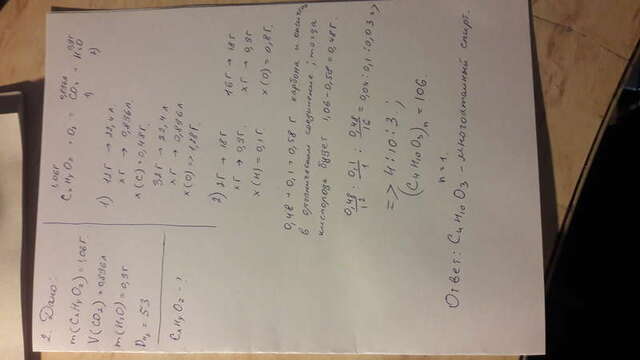 2. Дано:
m(CxHyO2) = 1,06г.
V(CO2) = 0,896л
m(H2O) = 0,9г
DH2 = 53
CxHyO2 - ?
1,06г 0,896л 0,9г
CxHyO2 + O2 = CO2 + H2O
1) 2)
1) 12г → 22,4л.
xг → 0,896л.
x(C) = 0,48г.
32г → 22,4л
xг → 0,896л
x(O) => 1,28г.
2) 2г → 18г 16г → 18г
xг → 0,9г. xг → 0,9г
x(H) = 0,1г x(O) = 0,8г.
0,48 + 0,1 = 0,58 г карбона и
в органическом соединение; тогда
кислорода будет 1,06-0,58 = 0,48г.
0,48/12 : 0,1/1 : 0,48/16 = 0,04 : 0,1 : 0,03 =>
=> 4 : 10 : 3 ;
(C4H10O3)n = 106.
n = 1.
Ответ: C4H10O3 - многоатомный спирт.